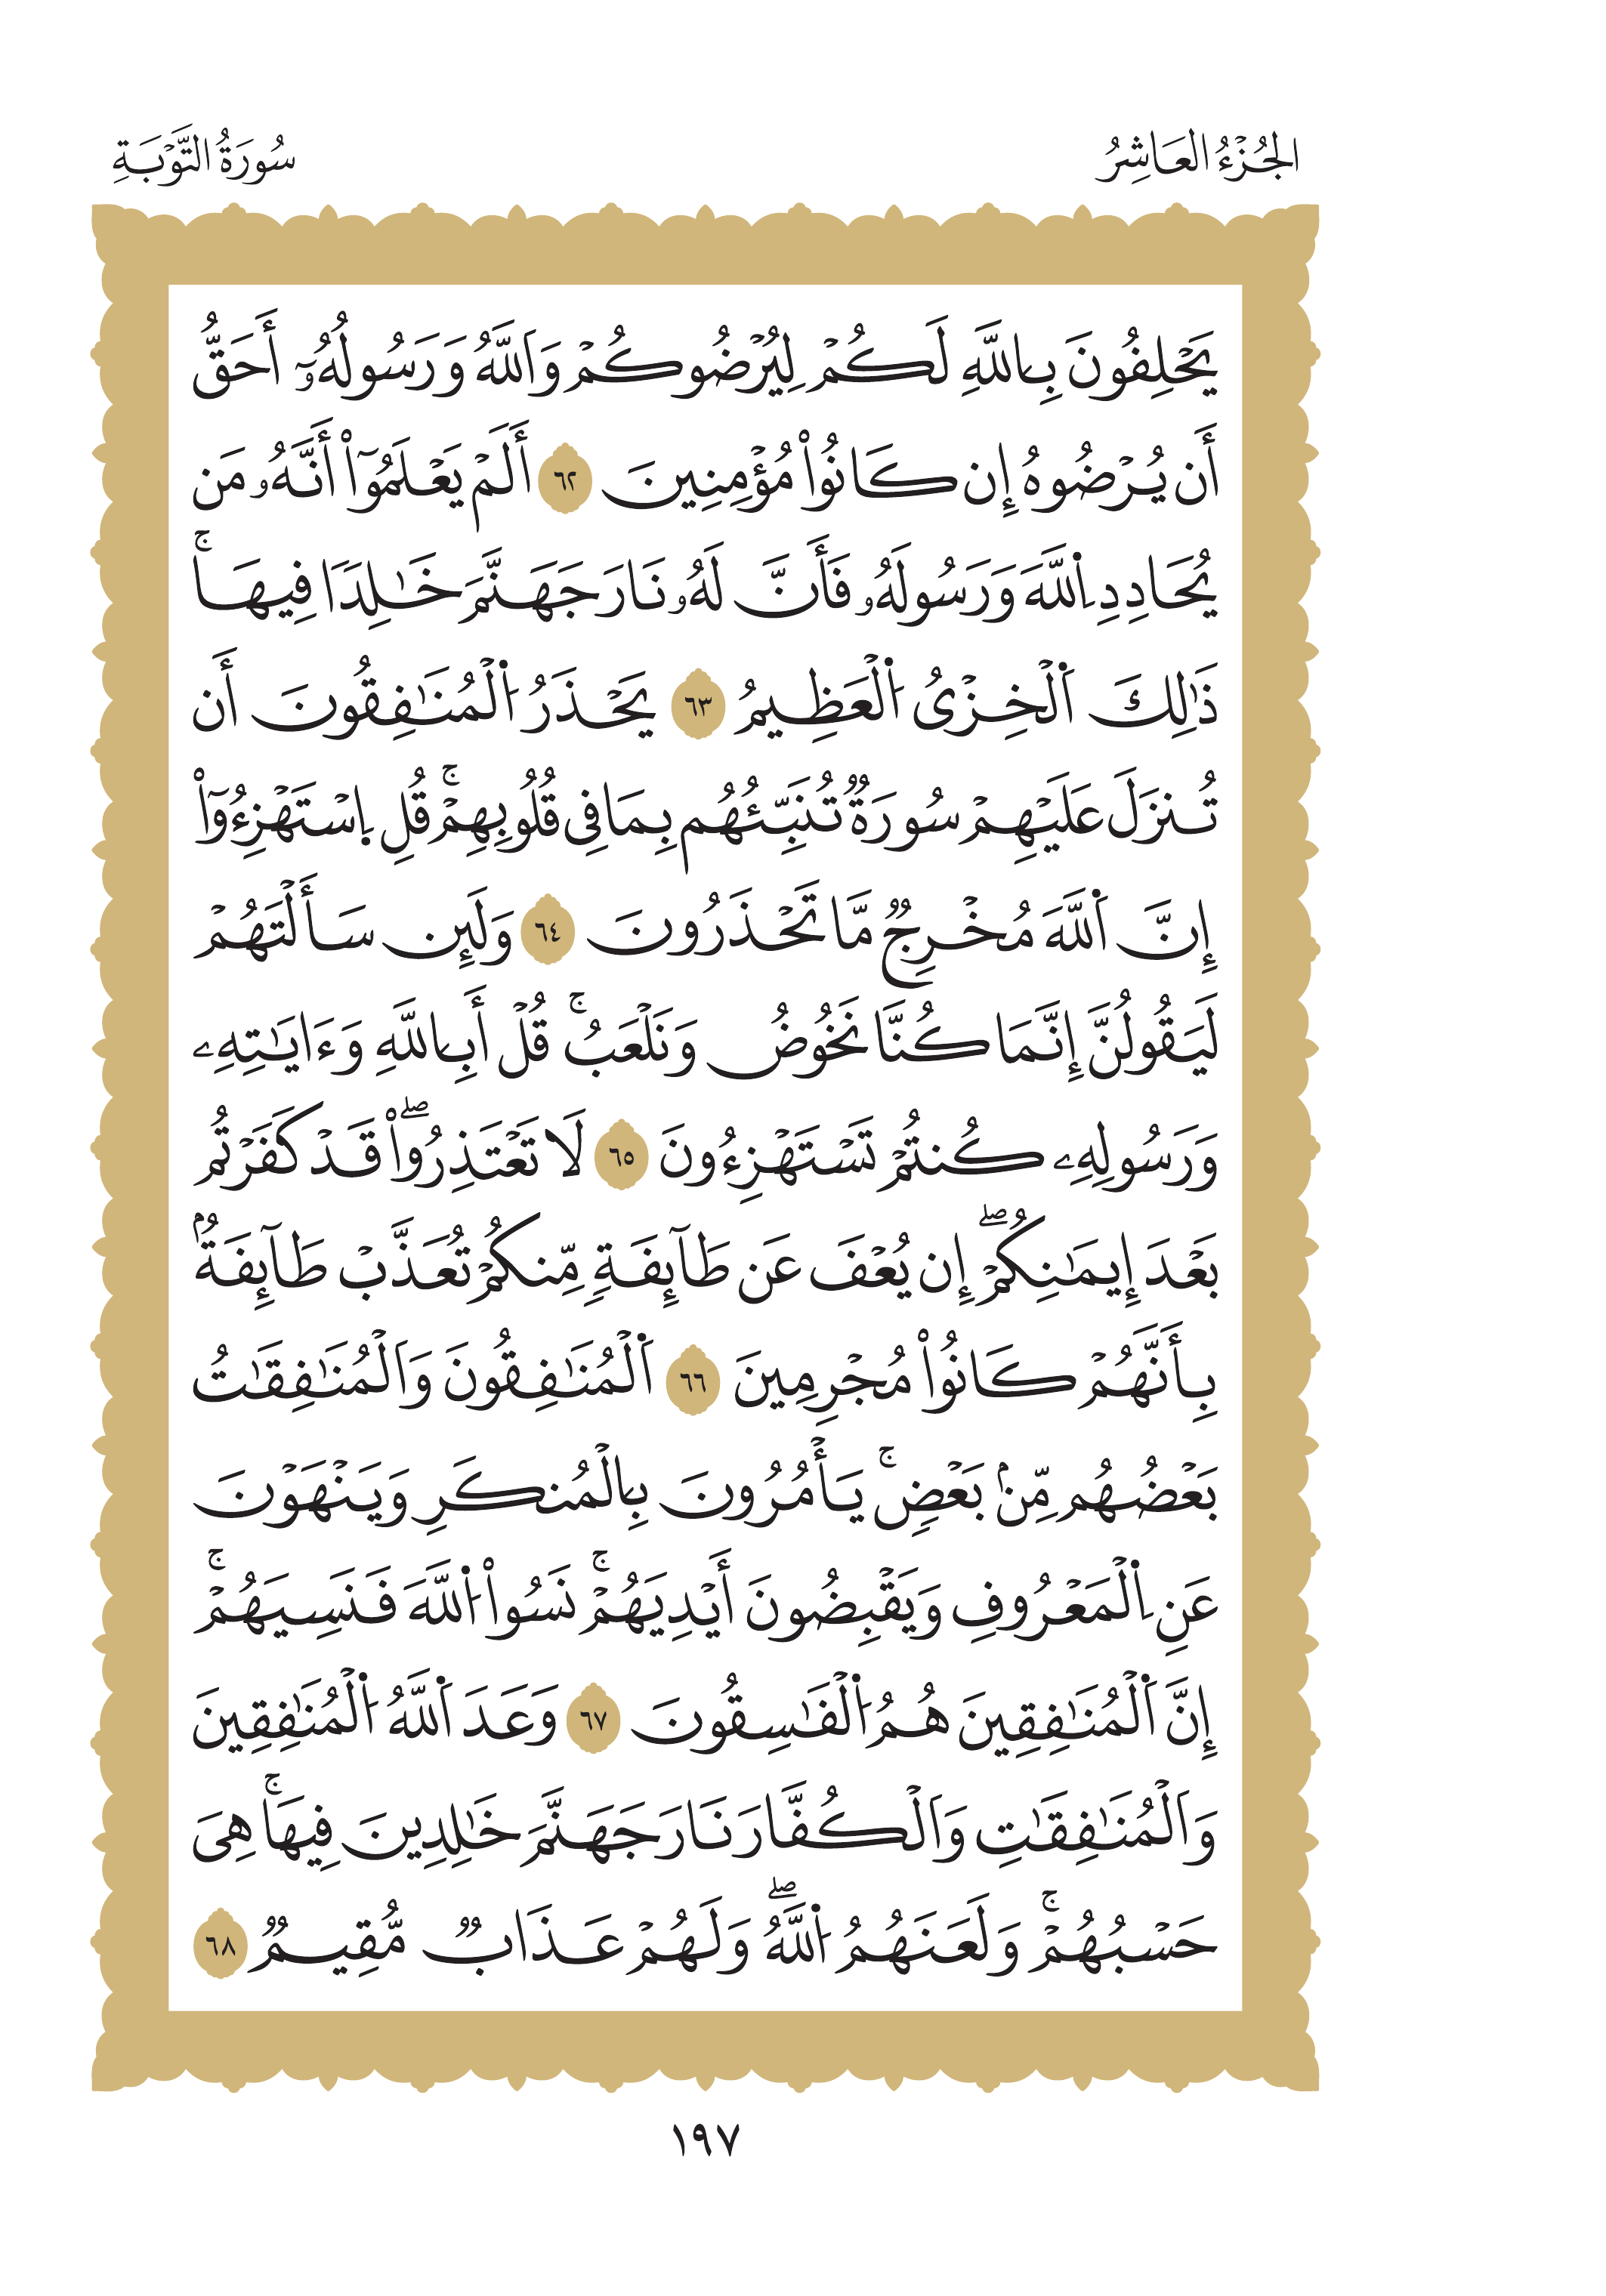 الجُزْءُ العَاشِرُ
سُورَةُ التَّوْبَةِ
يَحْلِفُونَ بِاللَّهِ لَكُمْ لِيُرْضُوكُمْ وَاَللَّهُ وَرَسُولُهُۥٓ أَحَقُّ
أَن يُرْضُوهُ إِن كَانُواْ مُؤْمِنِينَ ٦٢ أَلَمْ يَعْلَمُوٓاْ أَنَّهُۥ مَن
يُحَادِدِ اِ۬للَّهَ وَرَسُولَهُۥ فَأَنَّ لَهُۥ نَارَ جَهَنَّمَ خَٰلِدًا فِيهَاۚ
ذَٰلِكَ اَ۬لْخِزْىُ اُ۬لْعَظِيمُ ٦٣ يَحْذَرُ اُ۬لْمُنَٰفِقُونَ أَن
تُنزَلَ عَلَيْهِمْ سُورَةٌ تُنَبِّئُهُم بِمَا فِى قُلُوبِهِمْۚ قُلِ اِ۪سْتَهْزِءُوٓاْ
إِنَّ اَ۬للَّهَ مُخْرِجٌ مَّا تَحْذَرُونَ ٦٤ وَلَئِن سَأَلْتَهُمْ
لَيَقُولُنَّ إِنَّمَا كُنَّا نَخُوضُ وَنَلْعَبُۚ قُلْ أَبِاللَّهِ وَءَايَٰتِهِۦ
وَرَسُولِهِۦ كُنتُمْ تَسْتَهْزِءُونَ ٦٥ لَا تَعْتَذِرُواْۖ قَدْ كَفَرْتُم
بَعْدَ إِيمَٰنِكُمْۖ إِن يُعْفَ عَن طَآئِفَةٍ مِّنكُمْ تُعَذَّبْ طَآئِفَةُۢ
بِأَنَّهُمْ كَانُواْ مُجْرِمِينَ ٦٦ اَ۬لْمُنَٰفِقُونَ وَاَلْمُنَٰفِقَٰتُ
بَعْضُهُم مِّنۢ بَعْضٍۚ يَأْمُرُونَ بِالْمُنكَرِ وَيَنْهَوْنَ
عَنِ اِ۬لْمَعْرُوفِ وَيَقْبِضُونَ أَيْدِيَهُمْۚ نَسُواْ اُ۬للَّهَ فَنَسِيَهُمْۚ
إِنَّ اَ۬لْمُنَٰفِقِينَ هُمُ اُ۬لْفَٰسِقُونَ ٦٧ وَعَدَ اَ۬للَّهُ اُ۬لْمُنَٰفِقِينَ
وَاَلْمُنَٰفِقَٰتِ وَاَلْكُفَّارَ نَارَ جَهَنَّمَ خَٰلِدِينَ فِيهَاۚ هِىَ
حَسْبُهُمْۚ وَلَعَنَهُمُ اُ۬للَّهُۖ وَلَهُمْ عَذَابٌ مُّقِيمٌ ٦٨
١٩٧